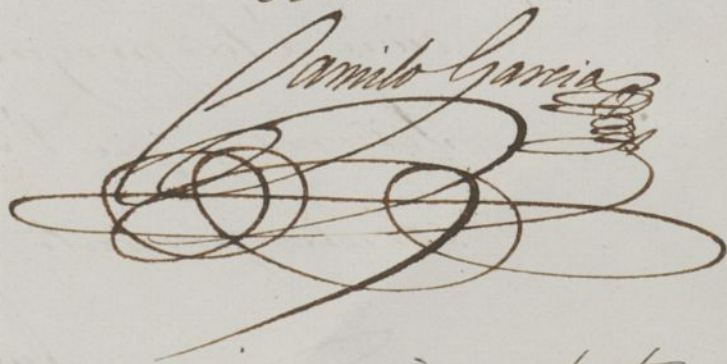 Camilo Garcia